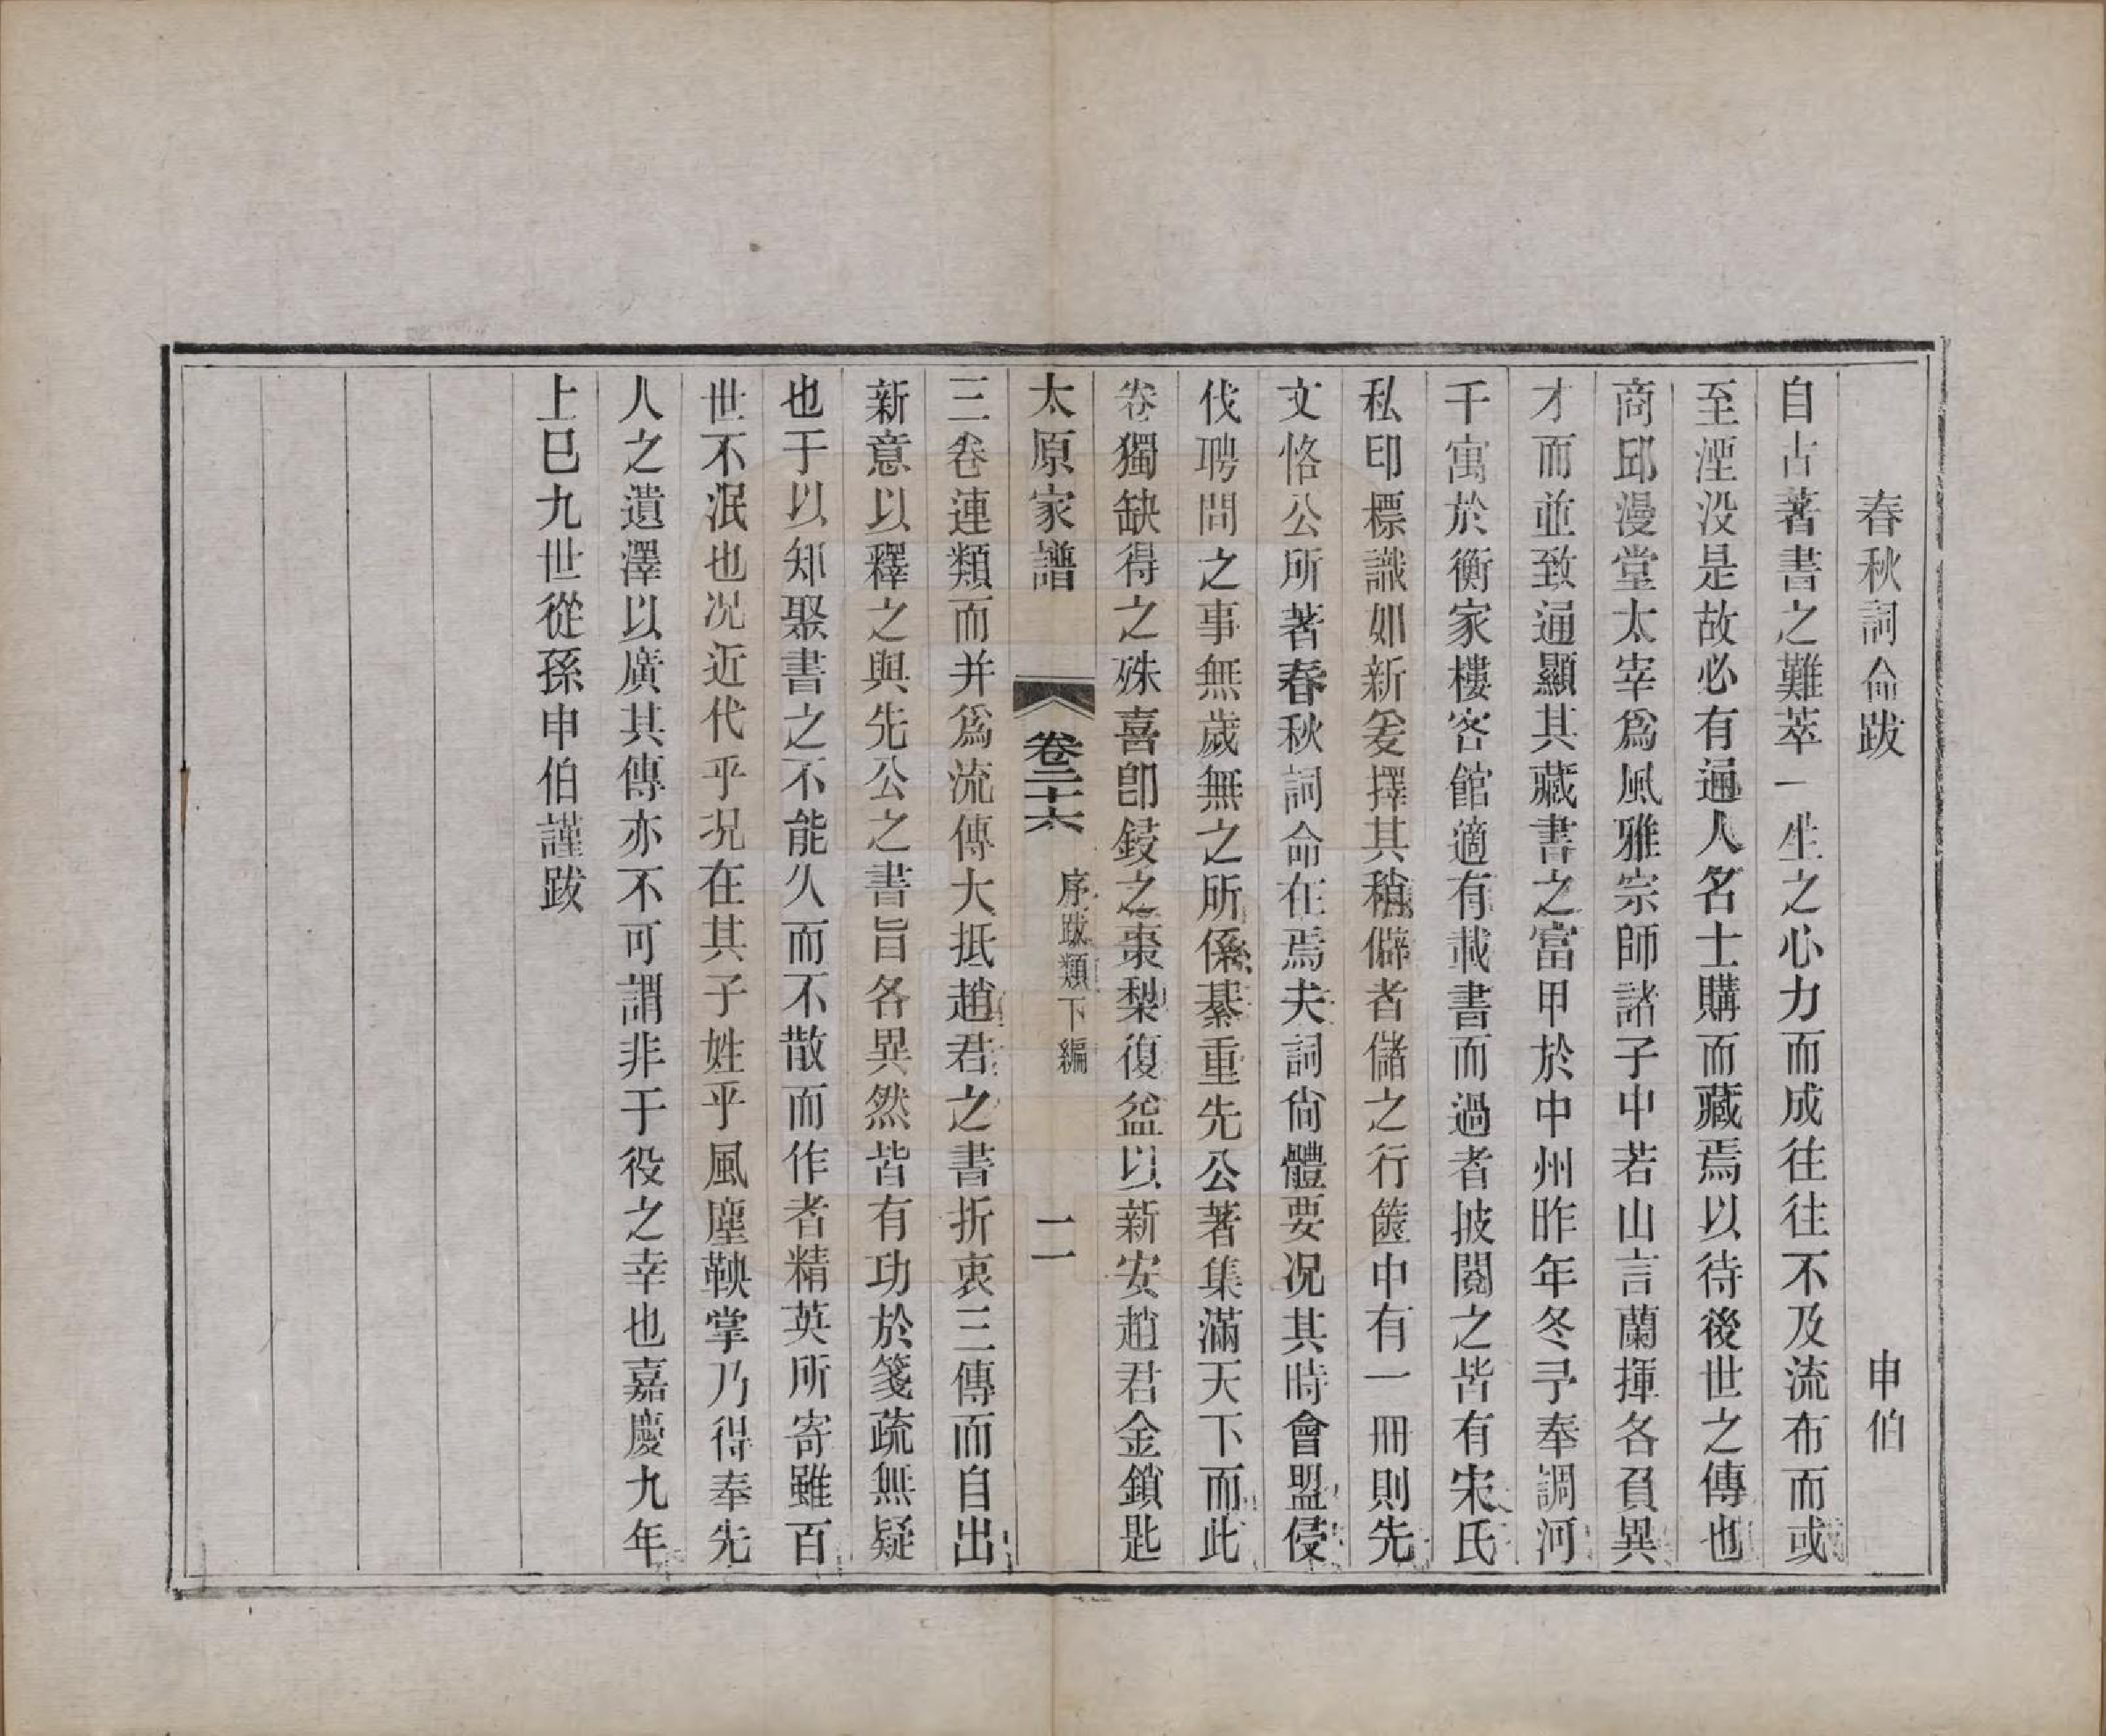 春秋詞命跋　申伯
自古著書之難萃一生之心力而成往往不及流布而或
至湮没是故必有通人名士購而藏焉以待後世之傳也
商邱漫堂太宰爲風雅宗師諸子中若山言蘭揮各負異
才而並致通顯其藏書之富甲於中州昨年冬予奉調河
千寓於衡家樓客館適有載書而過者披閱之皆有宋氏
私印標識如新爰擇其稍僻者儲之行篋中有一冊則先
文恪公所著春秋詞命在焉夫詞尙體要况其時會盟侵
伐聘問之事無歲無之所係綦重先公著集滿天下而此
卷獨缺得之殊喜卽鋟之棗梨復益以新安趙君金鎖匙
太原家譜　卷二十六　序跋類下編　二
三卷連類而并爲流傳大抵趙君之書折衷三傳而自出
新意以釋之與先公之書旨各異然皆有功於箋疏無疑
也于以知聚書之不能久而不散而作者精英所寄雖百
世不泯也况近代乎况在其子姓乎風塵鞅掌乃得奉先
人之遺澤以廣其傳亦不可謂非于役之幸也嘉慶九年
上巳九世從孫申伯謹跋